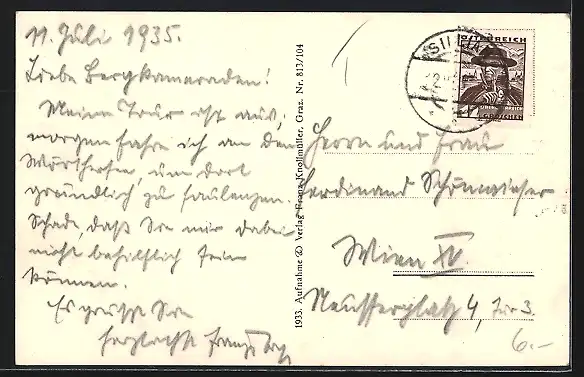 11. Juli 1935.
Liebe Bergkameraden!
Meine Tour ist aus,
morgen fahre ich an den
Wörthersee, um dort
gründlich zu faulenzen.
Schade, daß Sie mir dabei
nicht behilflich sein
können.
Es grüßt Sie
herzlichst Franz
1933. Aufnahme Verlag Franz Knollmüller, Graz. Nr. 813/104
ÖSTERREICH
GROSCHEN
Herrn und Frau
Ferdinand
Wien IV.
4, Tür 3.
6.-